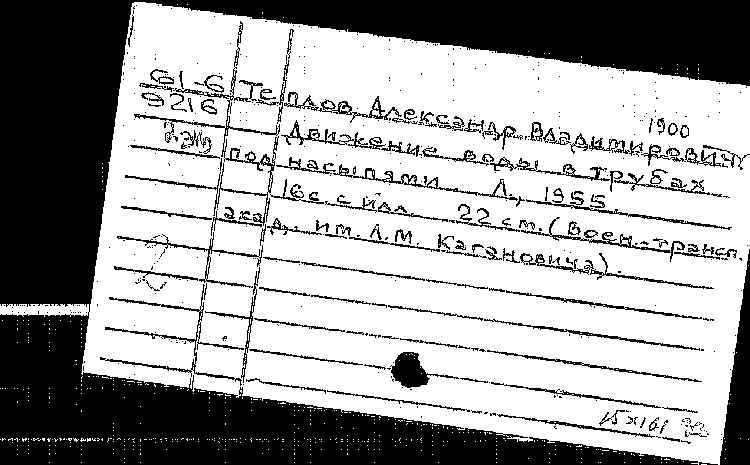 61-6
9216
2 экз
Теплов, Александр Владимирович
1900
Движение воды в трубах
под насыпями. Л., 1955.
16 с. с илл. 22 см. (Воен.-трансп.
акад. им. Л.М. Кагановича).
2
15 XI 61